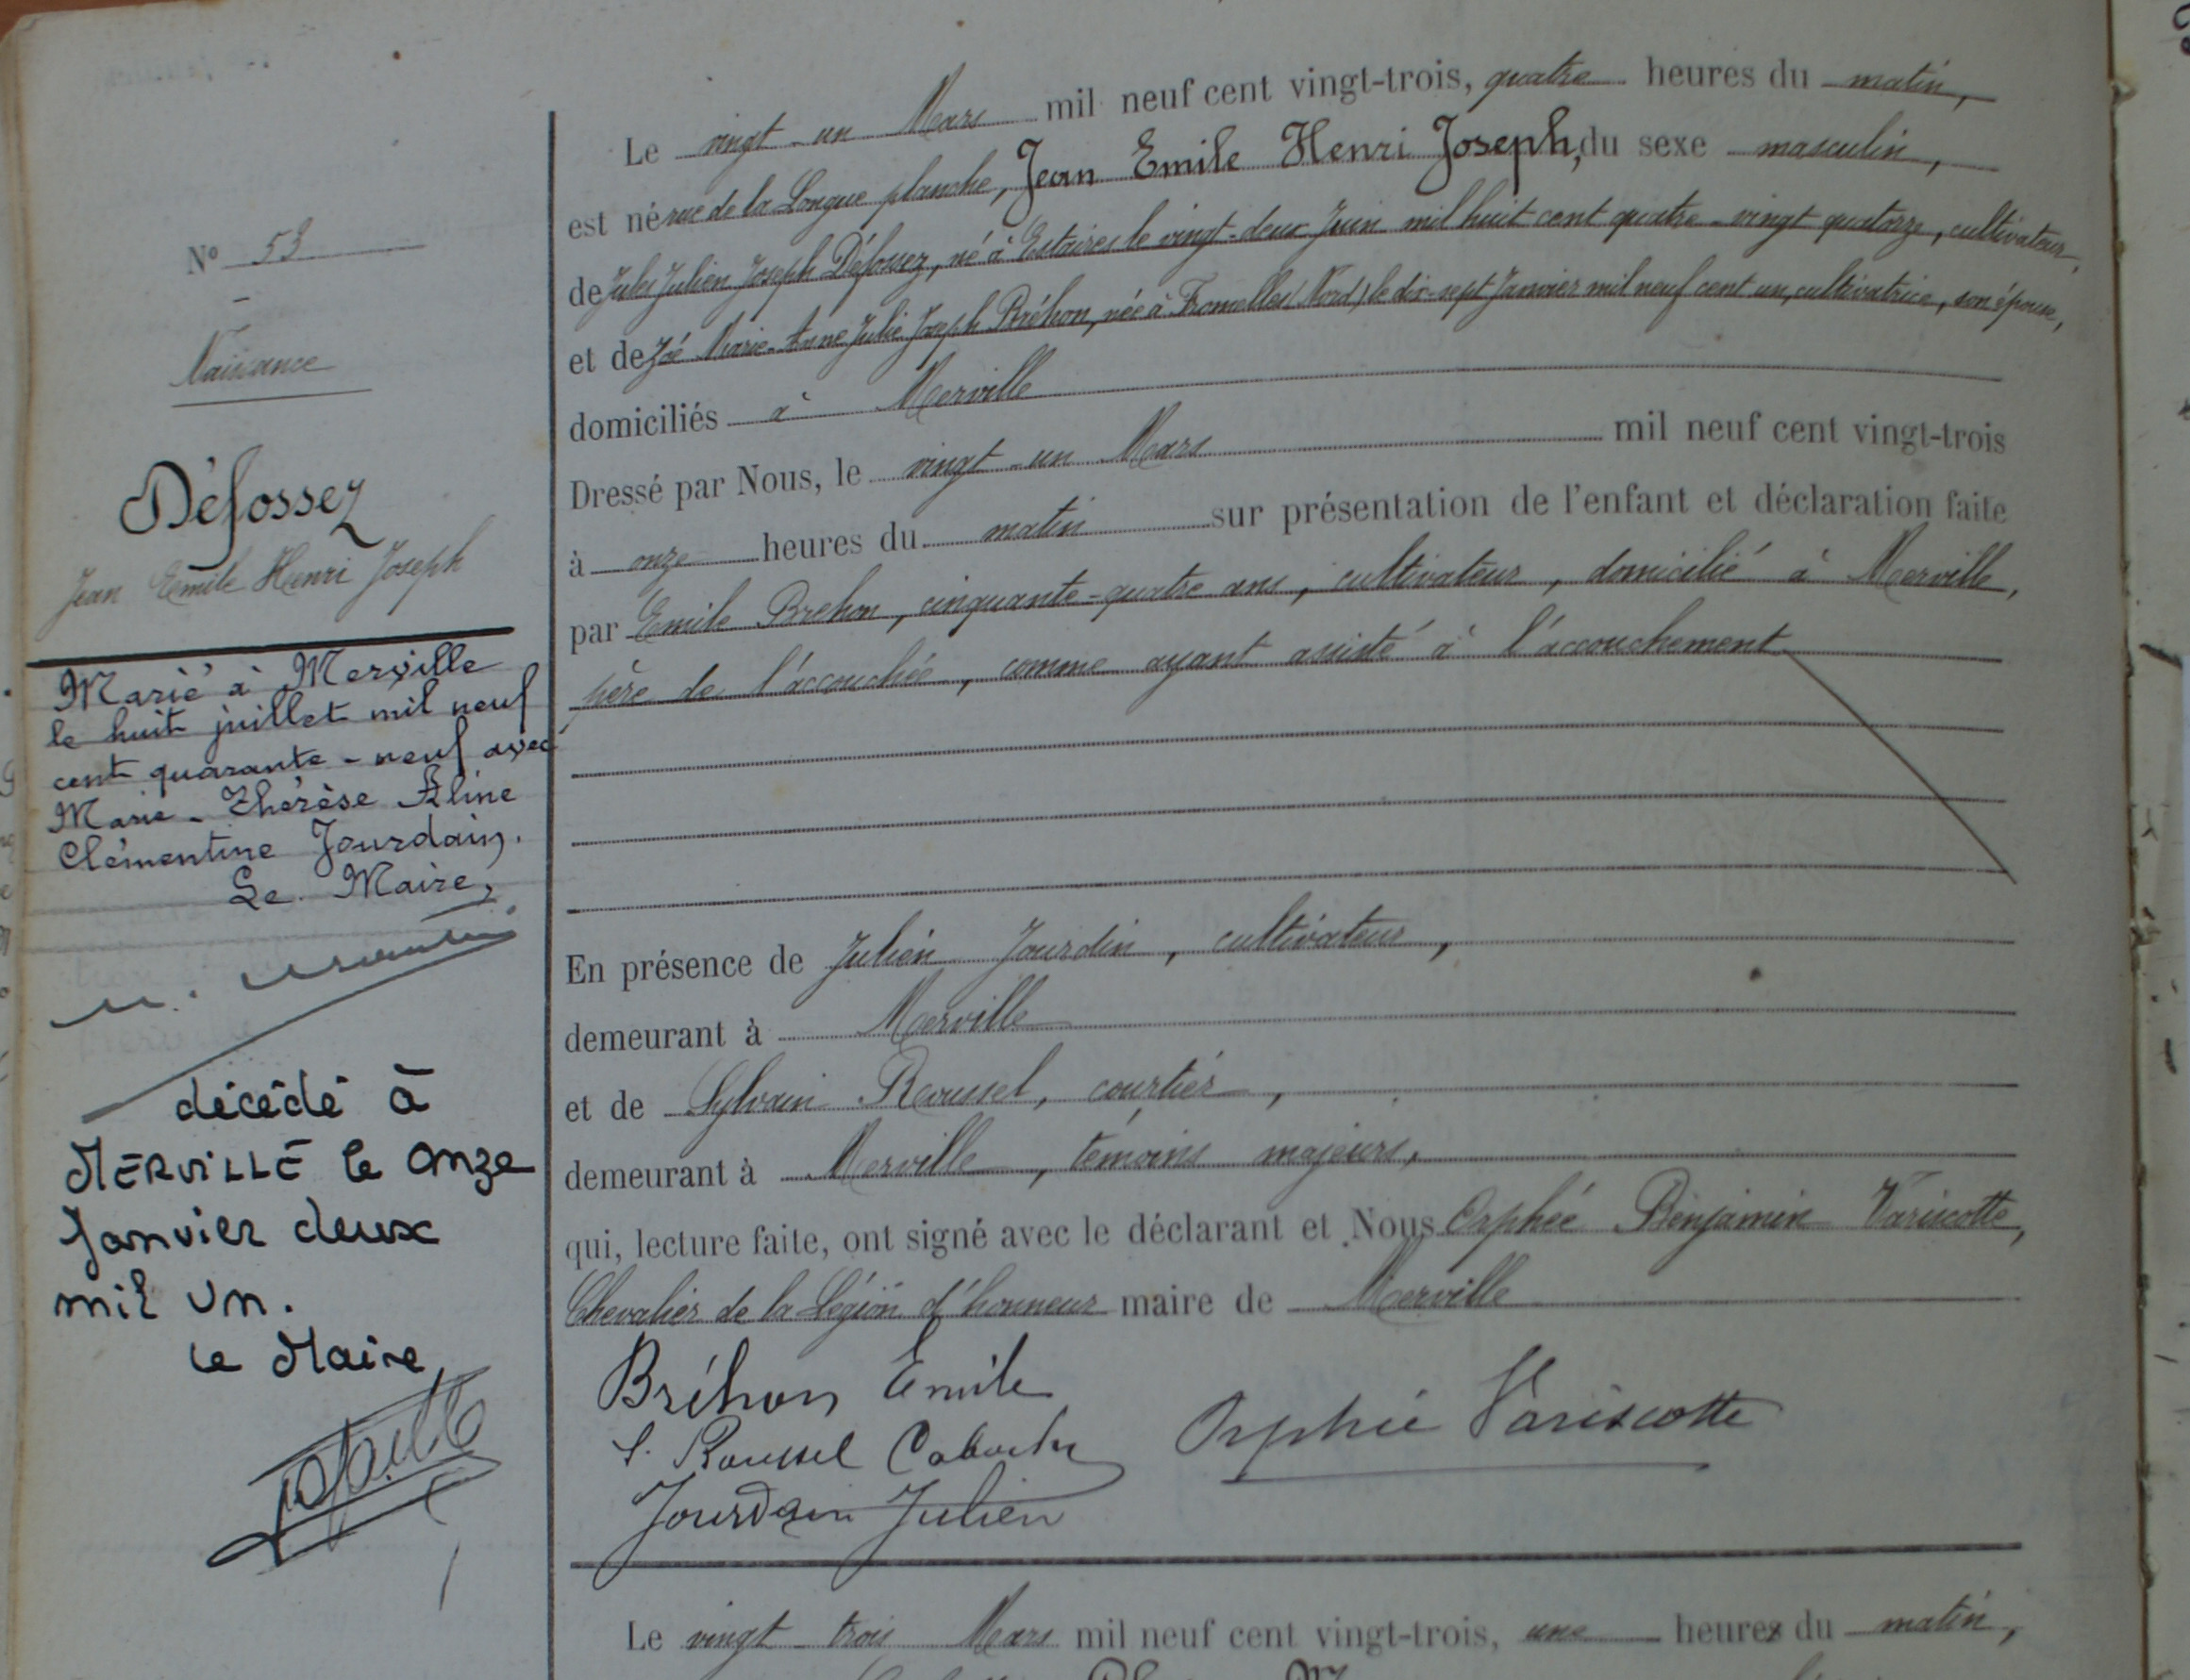 N° 53
Naissance
Défossez
Jean Emile Henri Joseph
Marié à Merville
le huit juillet mil neuf
cent quarante-neuf avec
Marie-Thérèse Aline
Clémentine Jourdain.
Le Maire,
décédé à
MERVILLE le onze
Janvier deux
mil un.
le Maire
Le vingt-un Mars mil neuf cent vingt-trois, quatre heures du matin,
est né rue de la Longue planche, Jean Emile Henri Joseph, du sexe masculin,
de Jules Julien Joseph Défossez, né à Estaires le vingt-deux Juin mil huit cent quatre-vingt quatorze, cultivateur,
et de Zoé Marie-Anne Julie Joseph Bréhon, née à Fromelles (Nord) le dix-sept Janvier mil neuf cent un, cultivatrice, son épouse,
domiciliés à Merville
Dressé par Nous, le vingt-un Mars mil neuf cent vingt-trois
à onze heures du matin sur présentation de l'enfant et déclaration faite
par Emile Brehon, cinquante-quatre ans, cultivateur, domicilié à Merville,
père de l'accouchée, comme ayant assisté à l'accouchement
En présence de Julien Jourdin, cultivateur,
demeurant à Merville
et de Sylvain Roussel, courtier,
demeurant à Merville, témoins majeurs,
qui, lecture faite, ont signé avec le déclarant et Nous Orphée Benjamin Variscotte,
Chevalier de la Légion d'honneur maire de Merville
Bréhon Emile
S. Roussel
Orphée Variscotte
Jourdain Julien
Le vingt-trois Mars mil neuf cent vingt-trois, une heures du matin,